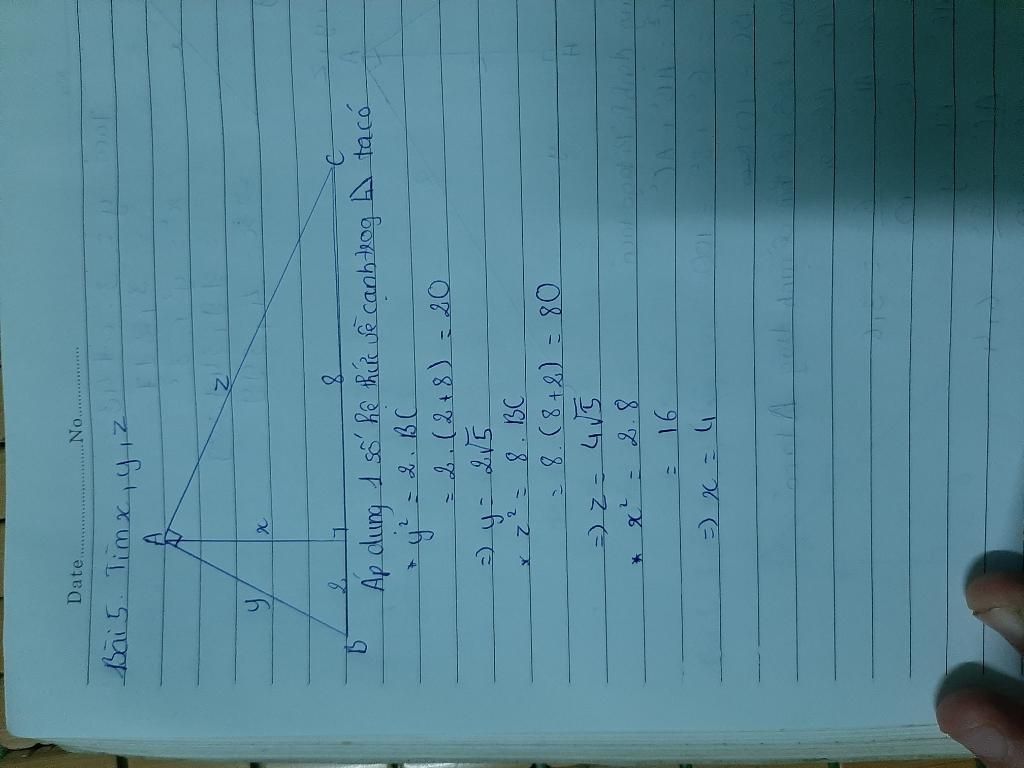 Date.....................No.....................
Bài 5. Tìm x, y, z
A
y
x
z
B
2
8
C
Áp dụng 1 số hệ thức về cạnh trog ta có
* y² = 2. BC
= 2. (2+8) = 20
=) y = 2√5
* z² = 8. BC
= 8. (8+2) = 80
=) z = 4√5
* x² = 2. 8
= 16
=) x = 4